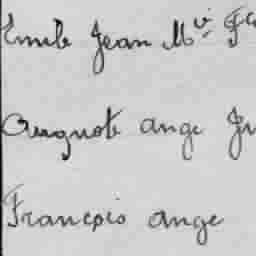 Emile Jean M.ie Fç
Auguste ange Fr
François ange